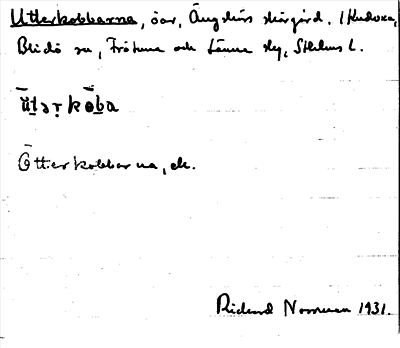 Utterkobbarna, öar, Ängskärs skärgård. 1 Hudoxa,
Blidö sn, Frötuna och Länna sky, Sthlms l.
ŭtərkoba
Otterkobbarna, ek.
Rickard Norrman 1931.